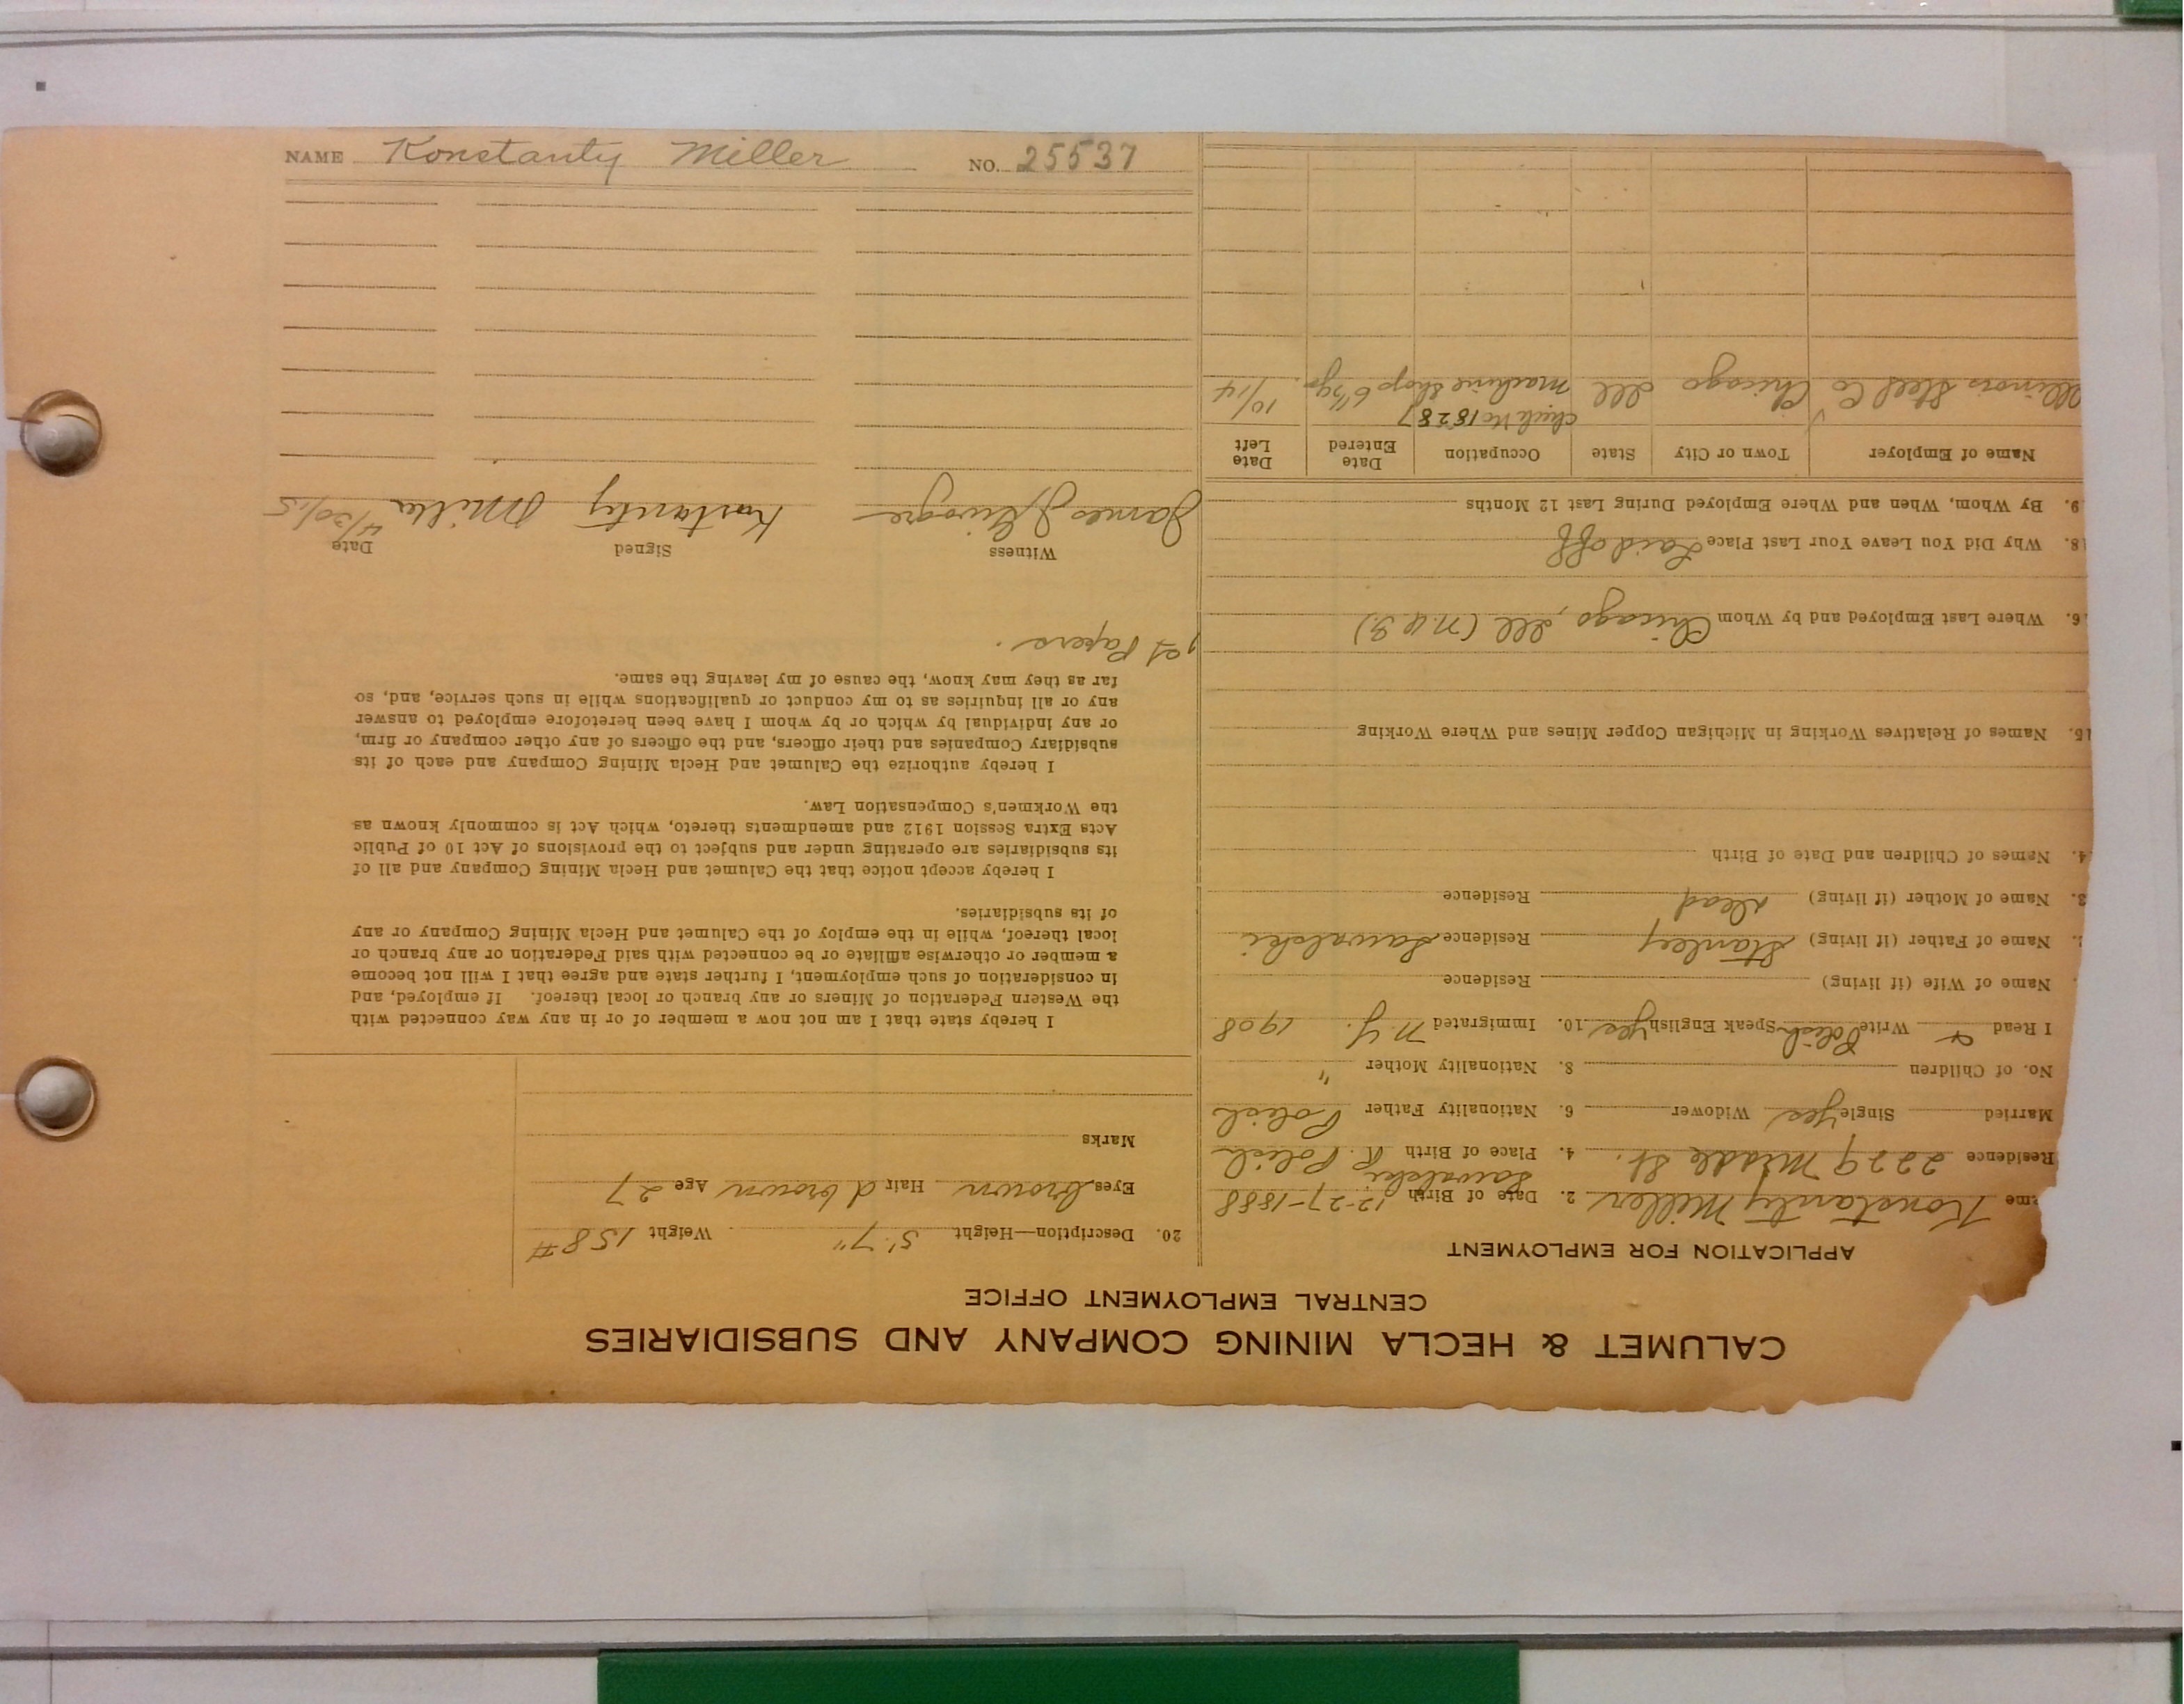 CALUMET & HECLA MINING COMPANY AND SUBSIDIARIES
CENTRAL EMPLOYMENT OFFICE
APPLICATION FOR EMPLOYMENT
me Konstanty Miller 2. Date of Birth 12-27-1888
Residence 2229 Middle St. 4. Place of Birth Suwalski R. Polish
Married Single yes Widower 6. Nationality Father Polish
No. of Children 8. Nationality Mother "
I Read & Write Polish Speak English yes 10. Immigrated N.Y. 1908
Name of Wife (if living) Residence
2. Name of Father (if living) Stanley Residence Suwalski
3. Name of Mother (if living) Dead Residence
4. Names of Children and Date of Birth
15. Names of Relatives Working in Michigan Copper Mines and Where Working
6. Where Last Employed and by Whom Chicago, Ill (N.W.S.)
8. Why Did You Leave Your Last Place Laid off
9. By Whom, When and Where Employed During Last 12 Months
Name of Employer Town or City State Occupation Date Entered Date Left
Check No 18287
Illinois Steel Co Chicago Ill machine shop 10/14
20. Description—Height 5'.7" Weight 158#
Eyes brown Hair d brown Age 27
Marks
I hereby state that I am not now a member of or in any way connected with
the Western Federation of Miners or any branch or local thereof. If employed, and
in consideration of such employment, I further state and agree that I will not become
a member or otherwise affiliate or be connected with said Federation or any branch or
local thereof, while in the employ of the Calumet and Hecla Mining Company or any
of its subsidiaries.
I hereby accept notice that the Calumet and Hecla Mining Company and all of
its subsidiaries are operating under and subject to the provisions of Act 10 of Public
Acts Extra Session 1912 and amendments thereto, which Act is commonly known as
the Workmen's Compensation Law.
I hereby authorize the Calumet and Hecla Mining Company and each of its
subsidiary Companies and their officers, and the officers of any other company or firm,
or any individual by which or by whom I have been heretofore employed to answer
any or all inquiries as to my conduct or qualifications while in such service, and, so
far as they may know, the cause of my leaving the same.
1st Papers.
Witness Signed Date
James Konstanty Miller 4/30/15
NAME Konstanty Miller NO. 25537